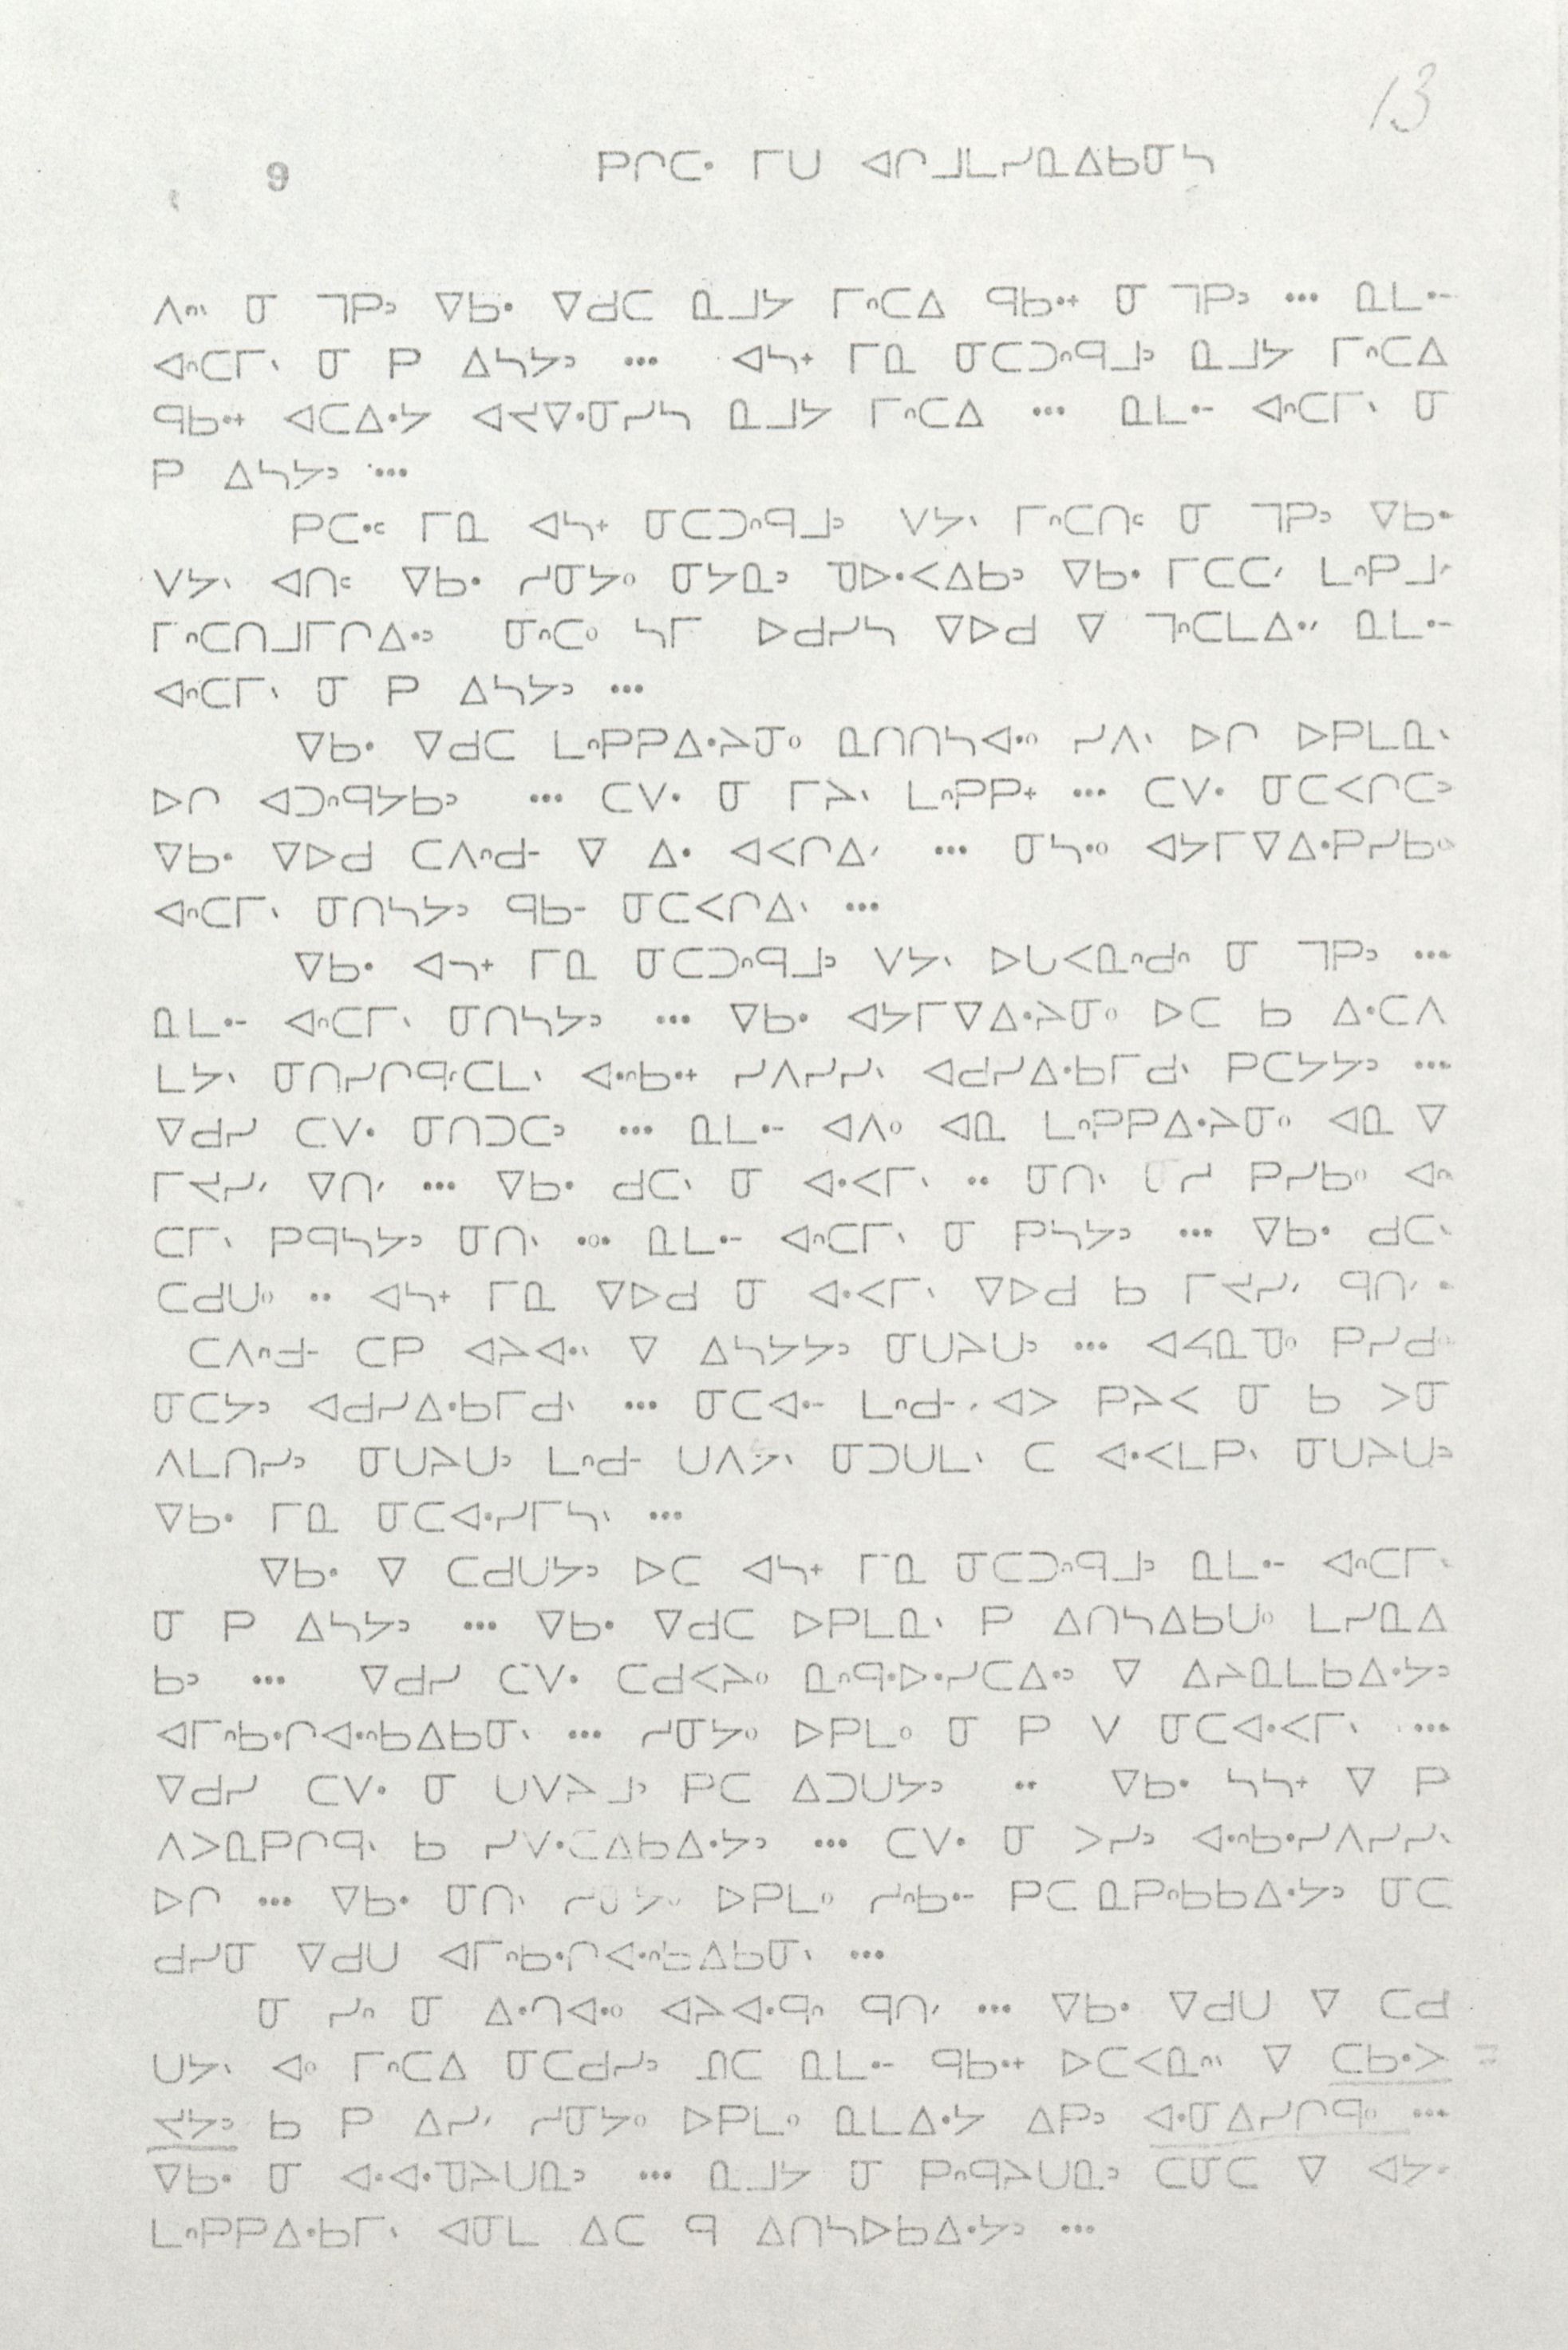 13
9 ᑭᒋᑕᐧ ᒥᑌ ᐊᒋᒧᒪᓯᓇᐃᑲᓂᓴ
ᐱᐢᐠ ᓂ ᒣᑭᐣ ᐁᑲᐧ ᐁᑯᑕ ᓇᒧᔭ ᒥᐢᑕᐃ ᑫᑲᐧᐩ ᓂ ᒣᑭᐣ ᐧᐧᐧ ᓇᒪᐧᐨ
ᐊᐢᑕᒥᐠ ᓂ ᑭ ᐃᓴᔭᐣ ᐧᐧᐧ ᐊᓴᐩ ᒥᓇ ᓂᑕᑐᐢᑫᒧᐣ ᓇᒧᔭ ᒥᐢᑕᐃ
ᑫᑲᐧᐩ ᐊᑕᐃᐧᔭ ᐊᔪᐁᐧᓂᓯᓴ ᓇᒧᔭ ᒥᐢᑕᐃ ᐧᐧᐧ ᓇᒪᐧᐨ ᐊᐢᑕᒥᐠ ᓂ
ᑭ ᐃᓴᔭᐣ ᐧᐧᐧ
ᑭᑕᐧᑦ ᒥᓇ ᐊᓴᐩ ᓂᑕᑐᐢᑫᒧᐣ ᐯᔭᐠ ᒥᐢᑕᑎᑦ ᓂ ᒣᑭᐣ ᐁᑲᐧ
ᐯᔭᐠ ᐊᑎᑦ ᐁᑲᐧ ᓯᓂᔭᐤ ᓂᔭᓇᐣ ᑯᐅᐧᐸᐃᑲᐣ ᐁᑲᐧ ᒥᑕᑕᐟ ᒪᐢᑭᒧᐟ
ᒥᐢᑕᑎᒧᒥᒋᐃᐧᐣ ᓂᐢᑕᐤ ᓴᒥ ᐅᑯᓯᓴ ᐁᐅᑯ ᐁ ᒣᐢᑕᒪᐃᐧᐟ ᓇᒪᐧᐨ
ᐊᐢᑕᒥᐠ ᓂ ᑭ ᐃᓴᔭᐣ ᐧᐧᐧ
ᐁᑲᐧ ᐁᑯᑕ ᒪᐢᑭᑭᐃᐧᔨᓂᐤ ᓇᑎᑎᓴᐊᐧᐤ ᓯᐱᐠ ᐅᒋ ᐅᑭᒪᓇᐠ
ᐅᒋ ᐊᑐᐢᑫᔭᑲᐣ ᐧᐧᐧ ᑕᐯᐧ ᓂ ᒥᔨᐠ ᒪᐢᑭᑭᐩ ᐧᐧᐧ ᑕᐯᐧ ᓂᑕᐸᒋᑕᐣ
ᐁᑲᐧ ᐁᐅᑯ ᑕᐱᐢᑯᐨ ᐁ ᐃᐧ ᐊᐸᒋᐃᐟ ᐧᐧᐧ ᓂᓴᐧᐤ ᐊᔭᒥᐁᐃᐧᑭᓯᑲᐤ
ᐊᐢᑕᒥᐠ ᓂᑎᓴᔭᐣ ᑫᑲᐨ ᓂᑕᐸᒋᐃᐠ ᐧᐧᐧ
ᐁᑲᐧ ᐊᓴᐩ ᒥᓇ ᓂᑕᑐᐢᑫᒧᐣ ᐯᔭᐠ ᐅᑌᐸᓇᐢᑯᐢ ᓂ ᒣᑭᐣ ᐧᐧᐧ
ᓇᒪᐧᐨ ᐊᐢᑕᒥᐠ ᓂᑎᓴᔭᐣ ᐧᐧᐧ ᐁᑲᐧ ᐊᔭᒥᐁᐃᐧᔨᓂᐤ ᐅᑕ ᑲ ᐃᐧᑕᐱ
ᒪᔭᐠ ᓂᑎᓯᒋᑫᐦᑕᒪᐠ ᐊᐧᐢᑲᐧᐩ ᓯᐱᓯᓯᐠ ᐊᑯᓯᐃᐧᑲᒥᑯᐠ ᑭᑕᔭᔭᐣ ᐧᐧᐧ
ᐁᑯᓯ ᑕᐯᐧ ᓂᑎᑐᑕᐣ ᐧᐧᐧ ᓇᒪᐧᐨ ᐊᐱᐤ ᐊᓇ ᒪᐢᑭᑭᐃᐧᔨᓂᐤ ᐊᓇ ᐁ
ᒥᔪᓯᐟ ᐁᑎᐟ ᐧᐧᐧ ᐁᑲᐧ ᑯᑕᐠ ᓂ ᐊᐧᐸᒥᐠ ᐧᐧ ᓂᑎᐠ ᓂᓯ ᑭᓯᑲᐤ ᐊᐢ
ᑕᒥᐠ ᑭᑫᓴᔭᐣ ᓂᑎᐠ ᐧᐤᐧ ᓇᒪᐧᐨ ᐊᐢᑕᒥᐠ ᓂ ᑭᓴᔭᐣ ᐧᐧᐧ ᐁᑲᐧ ᑯᑕᐠ
ᑕᑯᑌᐤ ᐧᐧ ᐊᓴᐩ ᒥᓇ ᐁᐅᑯ ᓂ ᐊᐧᐸᒥᐠ ᐁᐅᑯ ᑲ ᒥᔪᓯᐟ ᑫᑎᐟ ᐧ
ᑕᐱᐢᑯᐨ ᑕᑭ ᐊᔨᐊᐧᐠ ᐁ ᐃᓴᔭᔭᐣ ᓂᑌᔨᑌᐣ ᐧᐧᐧ ᐊᔽᓇᓀᐤ ᑭᓯᑯ
ᓂᑕᔭᐣ ᐊᑯᓯᐃᐧᑲᒥᑯᐠ ᐧᐧᐧ ᓂᑕᐊᐧᐨ ᒪᐢᑯᐨ ᐊᐳ ᑭᔨᐸ ᓂ ᑲ ᐳᓂ
ᐱᒪᑎᓯᐣ ᓂᑌᔨᑌᐣ ᒪᐢᑯᐨ ᑌᐱᔭᐠ ᓂᑐᑌᒪᐠ ᑕ ᐊᐧᐸᒪᑭᐠ ᓂᑌᔨᑌᐣ
ᐁᑲᐧ ᒥᓇ ᓂᑕᐊᐧᓯᒥᓴᐠ ᐧᐧᐧ
ᐁᑲᐧ ᐁ ᑕᑯᑌᔭᐣ ᐅᑕ ᐊᓴᐩ ᒥᓇ ᓂᑕᑐᐢᑫᒧᐣ ᓇᒪᐧᐨ ᐊᐢᑕᒥᐠ
ᓂ ᑭ ᐃᓴᔭᐣ ᐧᐧᐧ ᐁᑲᐧ ᐁᑯᑕ ᐅᑭᒪᓇᐠ ᑭ ᐃᑎᓴᐃᑲᑌᐤ ᒪᓯᓇᐃ
ᑲᐣ ᐧᐧᐧ ᐁᑯᓯ ᑕᐯᐧ ᑕᑯᐸᔨᐤ ᓇᐢᑫᐧᐅᐧᓯᑕᐃᐧᐣ ᐁ ᐃᔨᓇᒪᑲᐃᐧᔭᐣ
ᐊᒥᐢᑲᐧᒋᐊᐧᐢᑲᐃᑲᓂᐠ ᐧᐧᐧ ᓯᓂᔭᐤ ᐅᑭᒪᐤ ᓂ ᑭ ᐯ ᓂᑕᐊᐧᐸᒥᐠ ᐧᐧᐧ
ᐁᑯᓯ ᑕᐯᐧ ᓂ ᑌᐯᔨᒧᐣ ᑭᑕ ᐃᑐᑌᔭᐣ ᐧᐧ ᐁᑲᐧ ᓴᓴᐩ ᐁ ᑭ
ᐱᐳᓇᑭᒋᑫᐠ ᑲ ᓯᐯᐧᑕᐃᑲᐃᐧᔭᐣ ᐧᐧᐧ ᑕᐯᐧ ᓂ ᐳᓯᐣ ᐊᐧᐢᑲᐧᓯᐱᓯᓯᐠ
ᐅᒋ ᐧᐧᐧ ᐁᑲᐧ ᓂᑎᐠ ᓯᓂᔭᐤ ᐅᑭᒪᐤ ᓯᐢᑲᐧᐨ ᑭᑕ ᓇᑭᐢᑲᑲᐃᐧᔭᐣ ᓂᑕ
ᑯᓯᓂ ᐁᑯᑌ ᐊᒥᐢᑲᐧᒋᐊᐧᐢᑲᐃᑲᓂᐠ ᐧᐧᐧ
ᓂ ᓯᐢ ᓂ ᐃᐧᒉᐊᐧᐤ ᐊᔨᐊᐧᑫᐢ ᑫᑎᐟ ᐧᐧᐧ ᐁᑲᐧ ᐁᑯᑌ ᐁ ᑕᑯ
ᑌᔭᐠ ᐊᐤ ᒥᐢᑕᐃ ᓂᑕᑯᓯᐣ ᒁᑕ ᓇᒪᐧᐨ ᑫᑲᐧᐩ ᐅᑕᐸᓇᐢᐠ ᐁ ᑕᑲᐧᐳ
ᔪᔭᐣ ᑲ ᑭ ᐃᓯᐟ ᓯᓂᔭᐤ ᐅᑭᒪᐤ ᓇᒪᐃᐧᔭ ᐃᑭᐣ ᐊᐧᓂᐃᓯᒋᑫᐤ ᐧᐧᐧ
ᐁᑲᐧ ᓂ ᐊᐧᐊᐧᓀᔨᑌᓇᐣ ᐧᐧᐧ ᓇᒧᔭ ᓂ ᑭᐢᑫᔨᑌᓇᐣ ᑕᓂᑕ ᐁ ᐊᔭᐨ
ᒪᐢᑭᑭᐃᐧᑲᒥᐠ ᐊᓂᒪ ᐃᑕ ᑫ ᐃᑎᓴᐅᑲᐃᐧᔭᐣ ᐧᐧᐧ